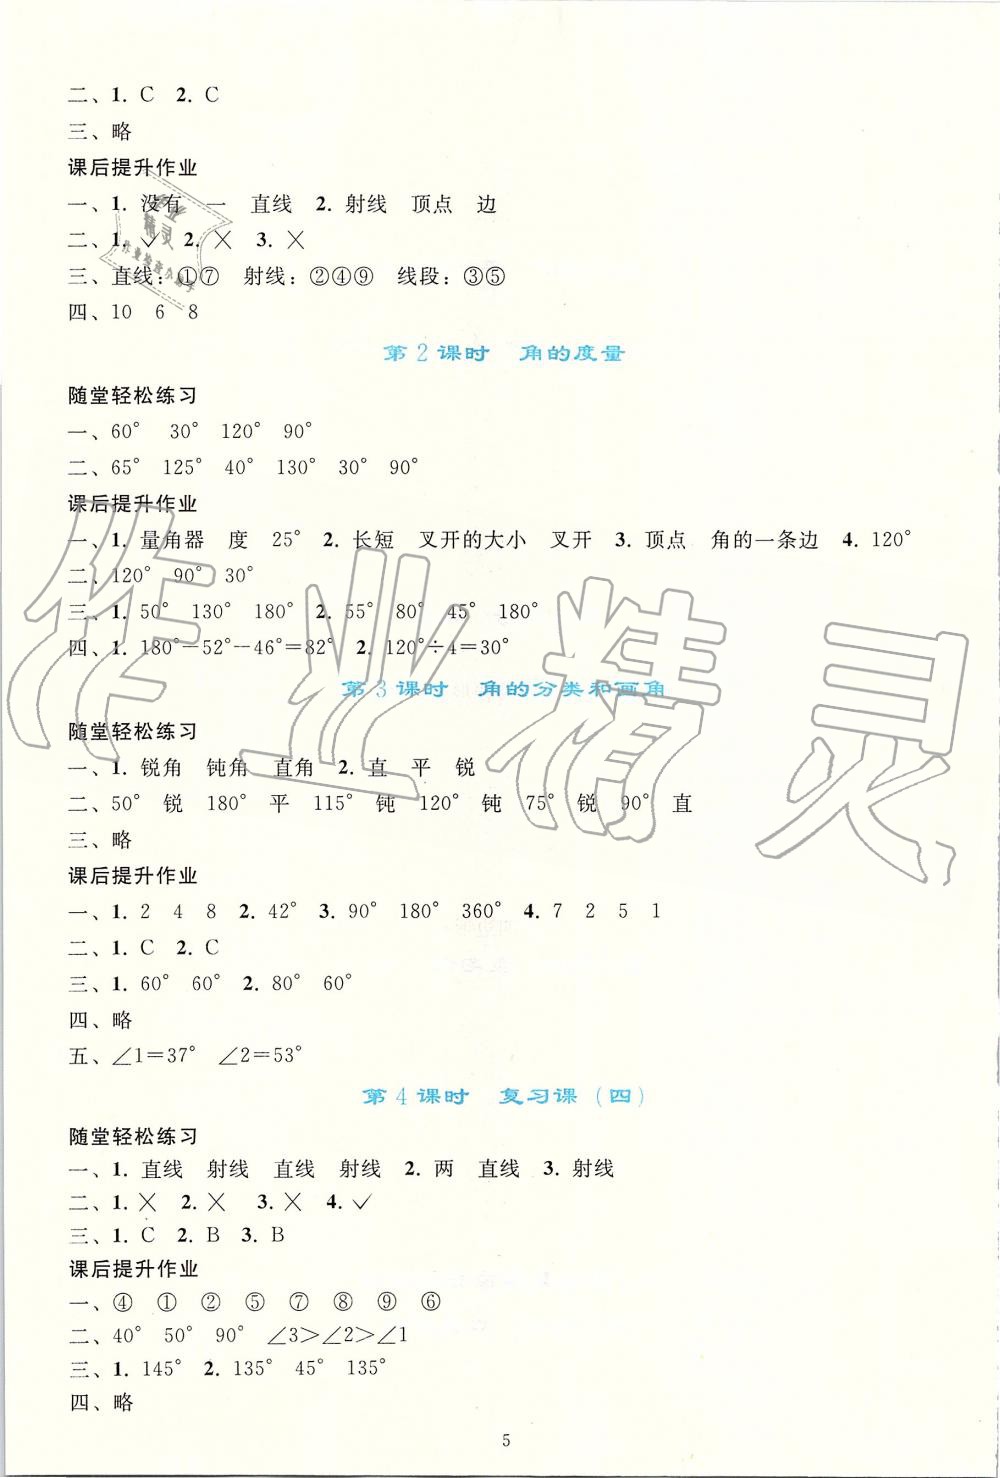 二、1. C 2. C
三、略
课后提升作业
一、1. 没有 一 直线 2. 射线 顶点 边
二、1. ✓ 2. ╳ 3. ╳
三、直线：①⑦ 射线：②④⑨ 线段：③⑤
四、10 6 8
第2课时 角的度量
随堂轻松练习
一、60° 30° 120° 90°
二、65° 125° 40° 130° 30° 90°
课后提升作业
一、1. 量角器 度 25° 2. 长短 叉开的大小 叉开 3. 顶点 角的一条边 4. 120°
二、120° 90° 30°
三、1. 50° 130° 180° 2. 55° 80° 45° 180°
四、1. 180°－52°－46°＝82° 2. 120°÷4＝30°
第3课时 角的分类和画角
随堂轻松练习
一、1. 锐角 钝角 直角 2. 直 平 锐
二、50° 锐 180° 平 115° 钝 120° 钝 75° 锐 90° 直
三、略
课后提升作业
一、1. 2 4 8 2. 42° 3. 90° 180° 360° 4. 7 2 5 1
二、1. C 2. C
三、1. 60° 60° 2. 80° 60°
四、略
五、∠1＝37° ∠2＝53°
第4课时 复习课（四）
随堂轻松练习
一、1. 直线 射线 直线 射线 2. 两 直线 3. 射线
二、1. ╳ 2. ╳ 3. ╳ 4. ✓
三、1. C 2. B 3. B
课后提升作业
一、④ ① ② ⑤ ⑦ ⑧ ⑨ ⑥
二、40° 50° 90° ∠3＞∠2＞∠1
三、1. 145° 2. 135° 45° 135°
四、略
5
作业精灵